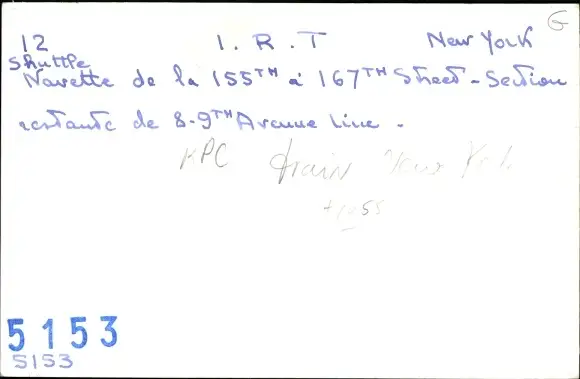 G
12 I.R.T New York
Shuttle
Navette de la 155TH à 167TH Street - Section
restante de 8-9TH Avenue Line -
KPC train New York
5153
5153